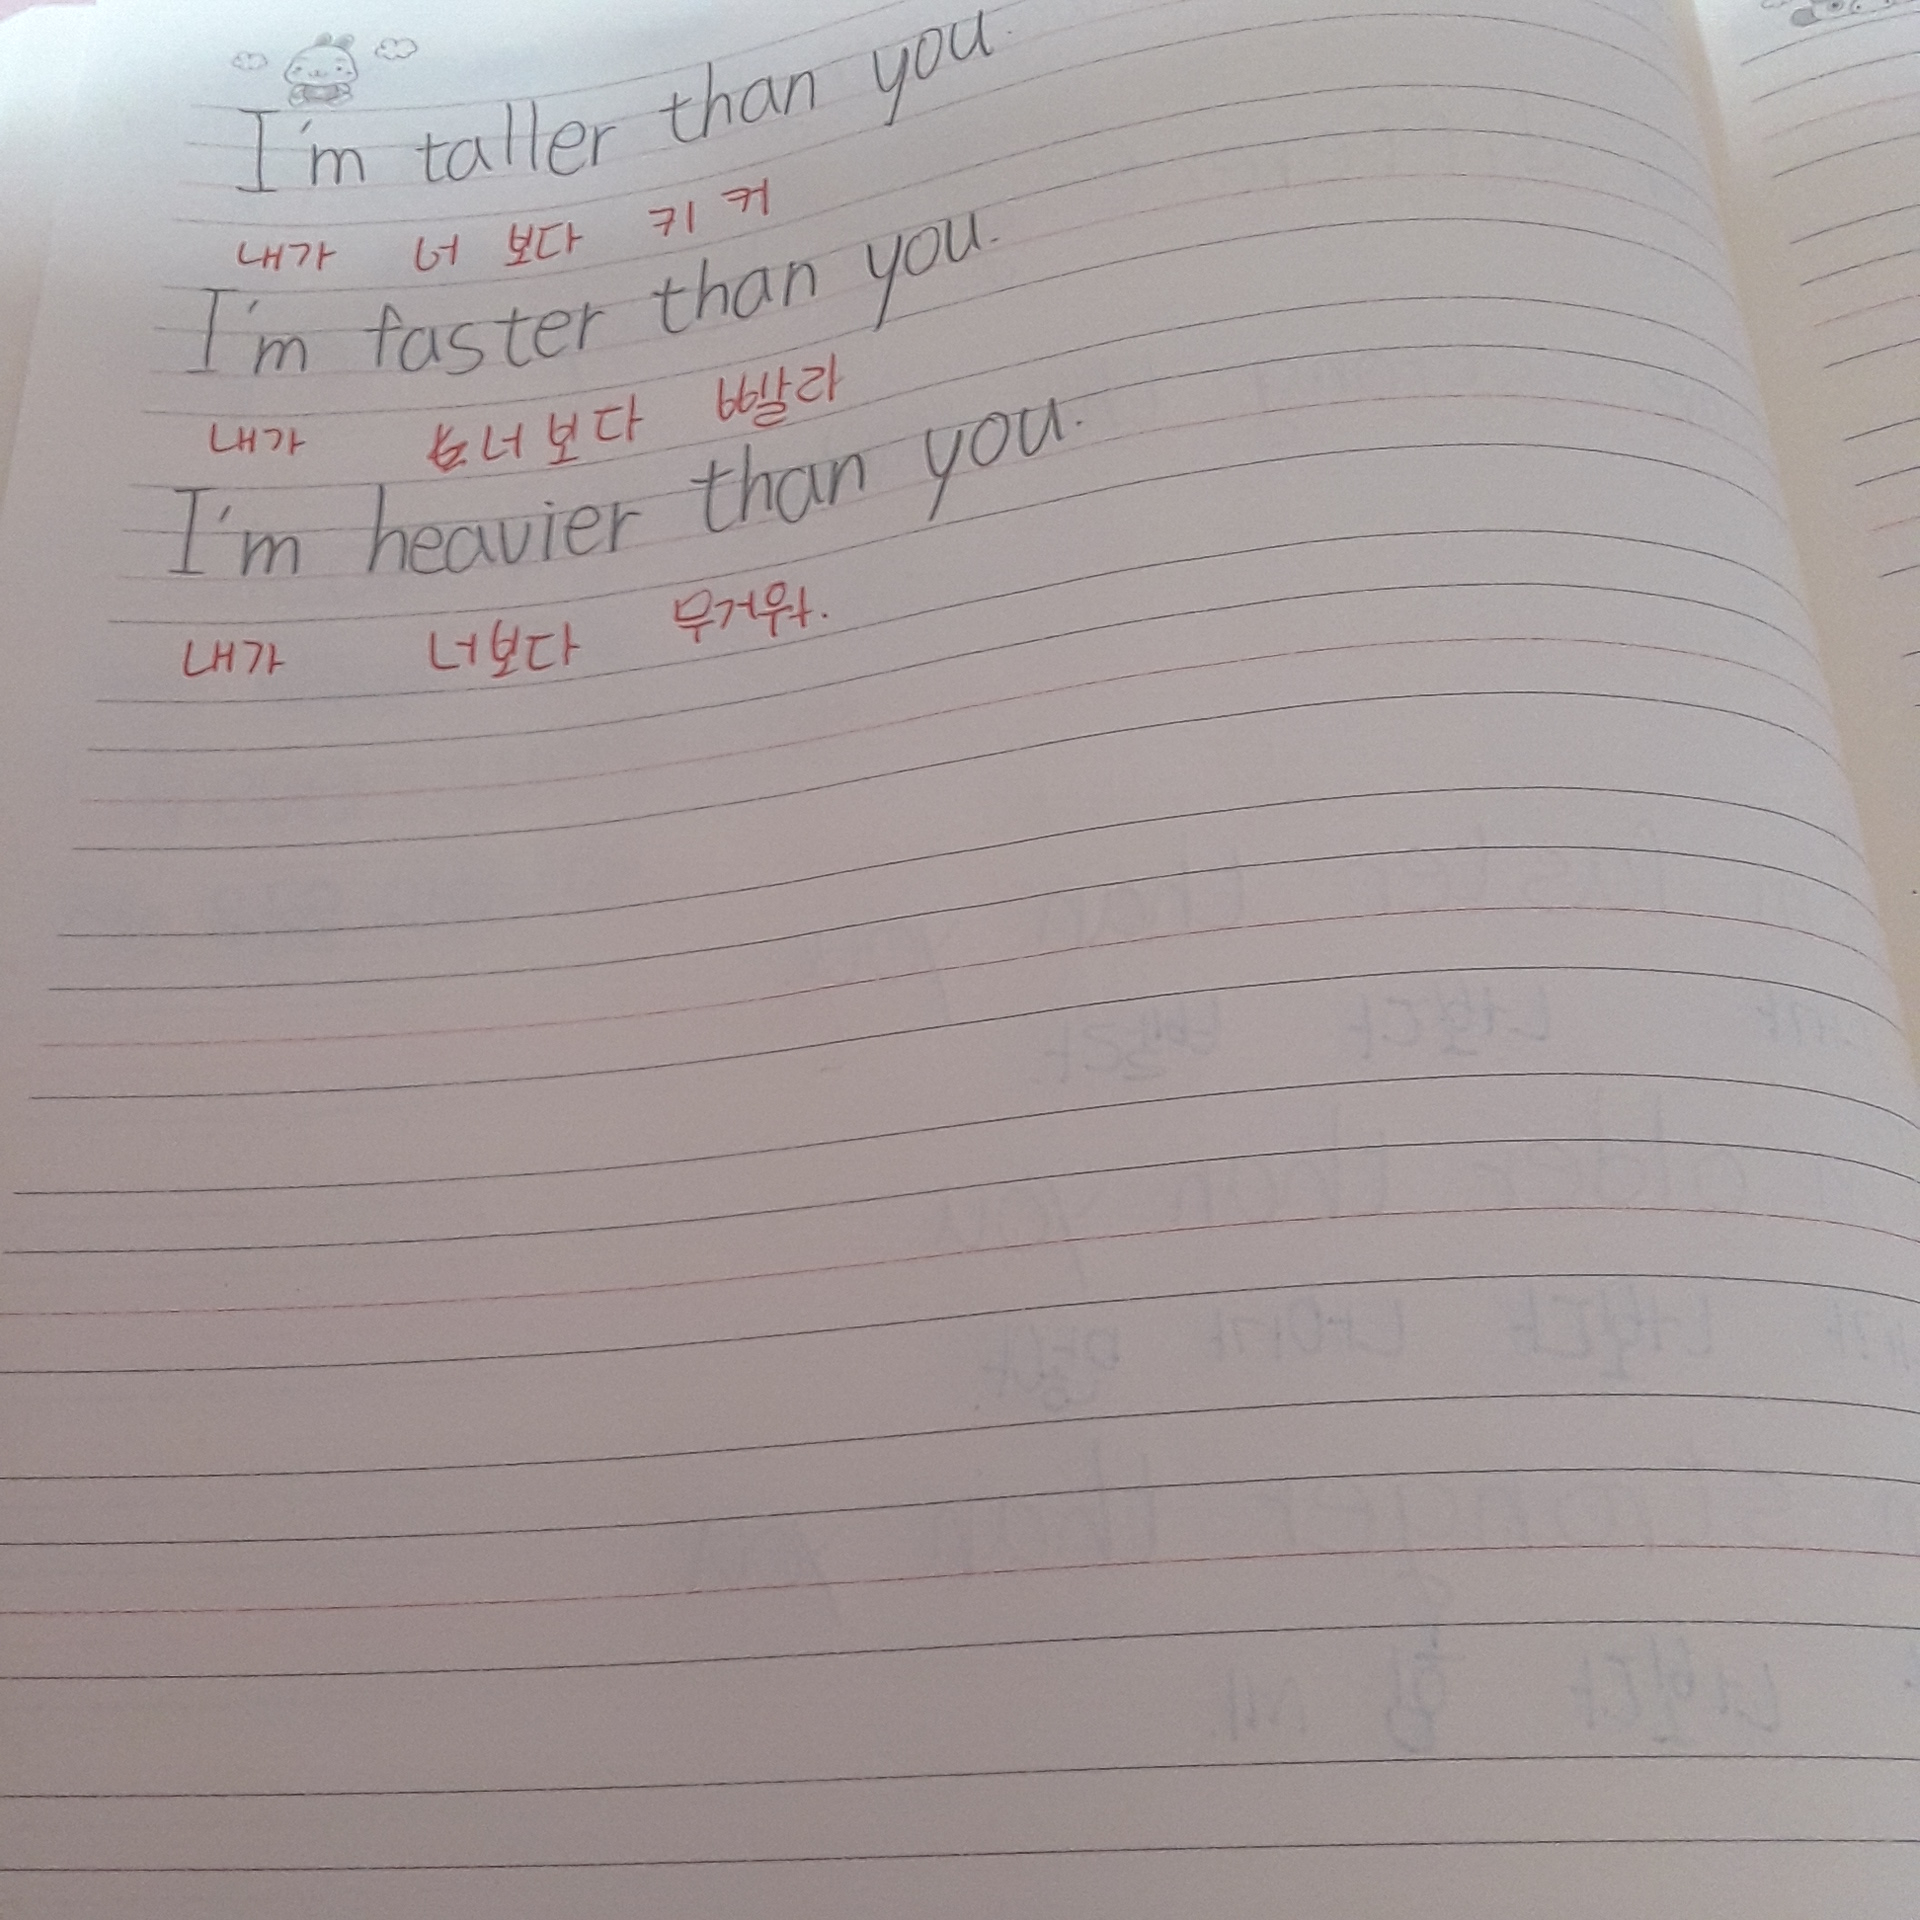 I'm taller than you.
내가 너 보다 키 커
I'm faster than you.
내가 너보다 빨라
I'm heavier than you.
내가 너보다 무거워.